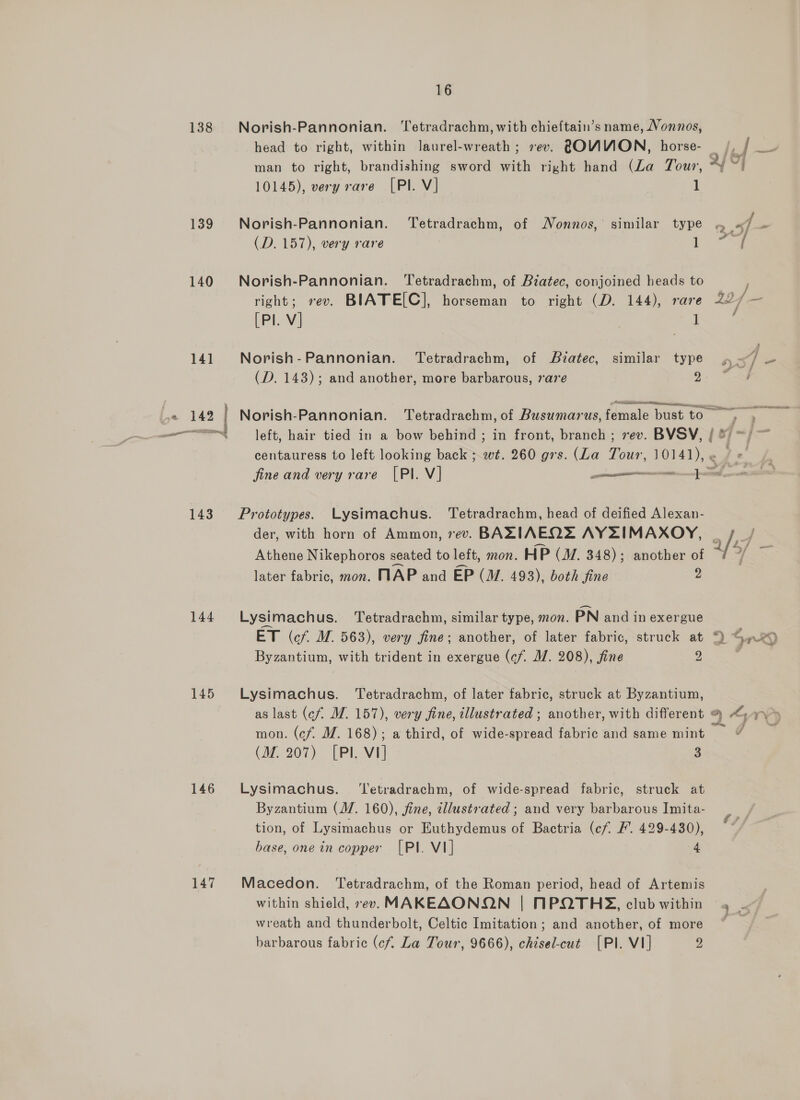 16
138 Norish-Pannonian. Tetradrachm, with chieftain's name, Nonnos,
head to right, within laurel-wreath; rev. ϨOИИON, horse-
man to right, brandishing sword with right hand (La Tour,
10145), very rare [Pl. V] 1
139 Norish-Pannonian. Tetradrachm, of Nonnos, similar type
(D. 157), very rare 1
140 Norish-Pannonian. Tetradrachm, of Biatec, conjoined heads to
right; rev. BIATE[C], horseman to right (D. 144), rare
[Pl. V] 1
141 Norish-Pannonian. Tetradrachm, of Biatec, similar type
(D. 143); and another, more barbarous, rare 2
142 Norish-Pannonian. Tetradrachm, of Busumarus, female bust to
left, hair tied in a bow behind; in front, branch; rev. BVSV,
centauress to left looking back; wt. 260 grs. (La Tour, 10141),
fine and very rare [Pl. V] 1
143 Prototypes. Lysimachus. Tetradrachm, head of deified Alexan-
der, with horn of Ammon, rev. ΒΑΣΙΛΕΩΣ ΛΥΣΙΜΑΧΟΥ,
Athene Nikephoros seated to left, mon. HP (M. 348); another of
later fabric, mon. ΠΑΡ and EP (M. 493), both fine 2
144 Lysimachus. Tetradrachm, similar type, mon. PN and in exergue
ET (cf. M. 563), very fine; another, of later fabric, struck at
Byzantium, with trident in exergue (cf. M. 208), fine 2
145 Lysimachus. Tetradrachm, of later fabric, struck at Byzantium,
as last (cf. M. 157), very fine, illustrated; another, with different
mon. (cf. M. 168); a third, of wide-spread fabric and same mint
(M. 207) [Pl. VI] 3
146 Lysimachus. Tetradrachm, of wide-spread fabric, struck at
Byzantium (M. 160), fine, illustrated; and very barbarous Imita-
tion, of Lysimachus or Euthydemus of Bactria (cf. F. 429-430),
base, one in copper [Pl. VI] 4
147 Macedon. Tetradrachm, of the Roman period, head of Artemis
within shield, rev. ΜΑΚΕΔΟΝΩΝ | ΠΡΩΤΗΣ, club within
wreath and thunderbolt, Celtic Imitation; and another, of more
barbarous fabric (cf. La Tour, 9666), chisel-cut [Pl. VI] 2